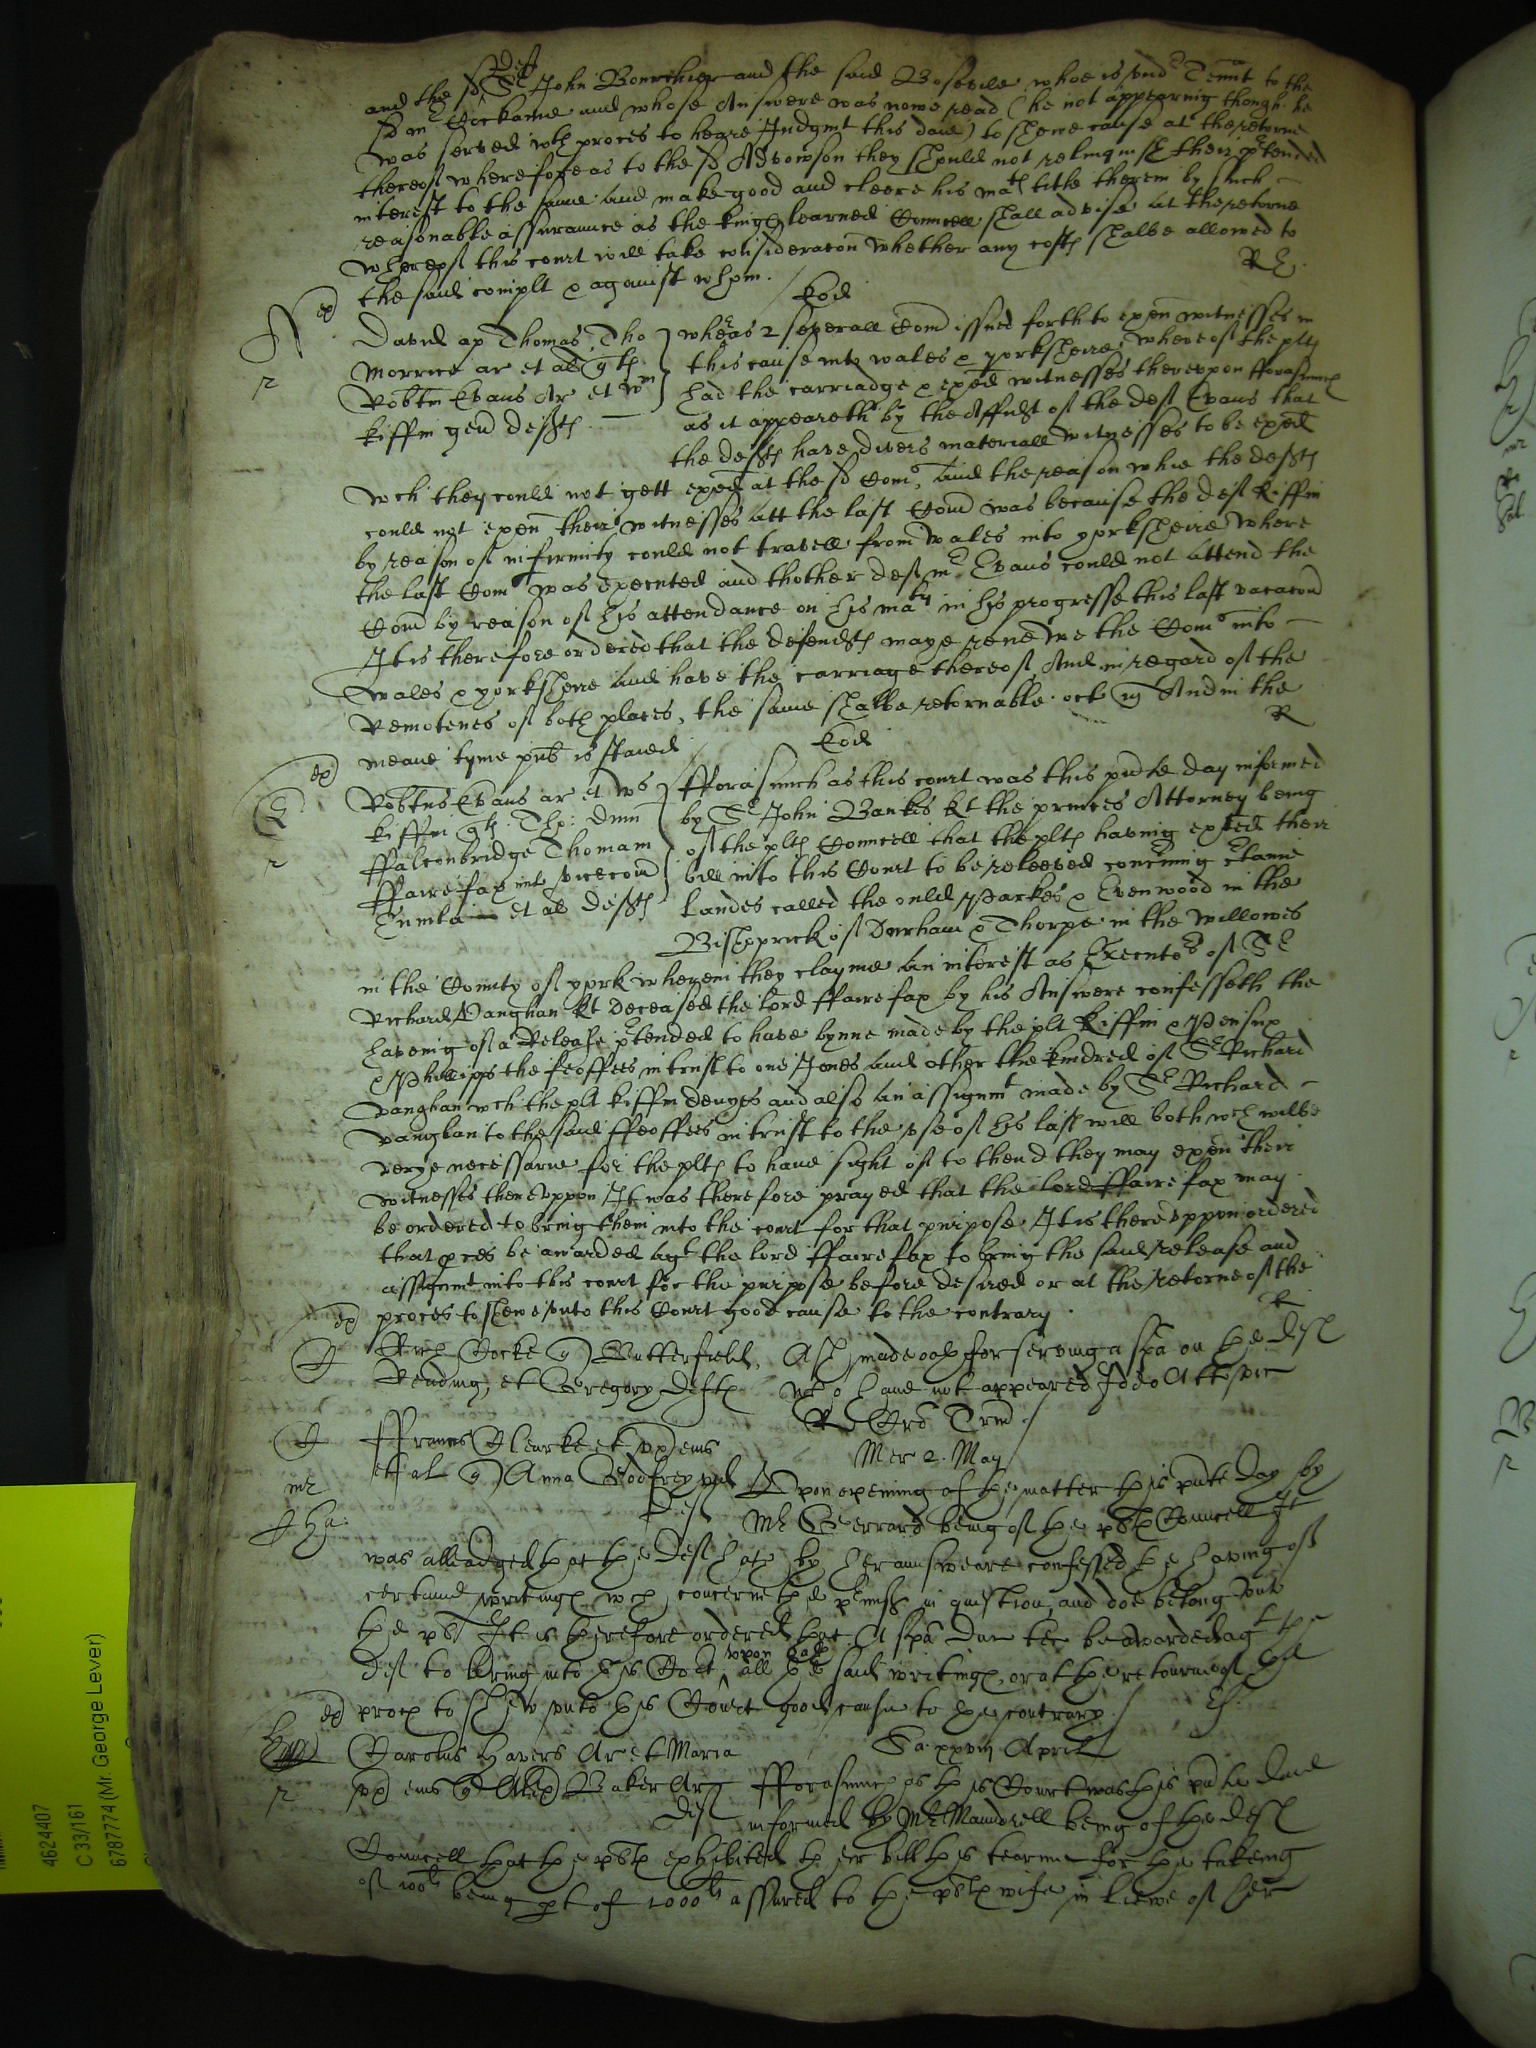 deft
and the sd Sr John Bourchier and the said Bosevile whoe is und Tennt to the
sd mr Cockaine and whose Answere was nowe read (he not appearing though he
was served wth proces to heare Judgmt this daie) to shewe cause at the retorne
thereof wherefore as to the sd Advowson they should not relinquish their ptended
interest to the same And make good and cleere his mats title therein by such
reasonable assurance as the kings learned Councell shall advise At the retorne
whereof this court will take consideracon whether any costs shalbe allowed to
the said complt & against whom.
RE.
ex
Eod
David ap Thomas, Tho
Morrice ar et al qts
Robtm Evans Ar et Wm
kiffin gen defts
wheras 2 severall Com issued forth to exen witnesses in
this cause into wales & yorksheire, whereof the plts
had the carriadge & exed witnesses thereupon fforasmuch
as it appeareth by the Affidt of the deft Evans that
the defts have divers materiall witnesses to be exed
wch they could not gett exed at the sd Coms, And the reason whie the defts
could not exen their witnesses att the last Com was because the deft kiffin
by reason of infirmity could not travell from wales into yorksheire where
the last Com was executed and thother deft mr Evans could not attend the
Com by reason of his attendance on his maty in his progresse this last vacacon
It is therefore ordered that the defendts maye renewe the Coms into
wales & yorksheire And have the carriage thereof And in regard of the
Remotenes of both places, the same shalbe retornable oct And in the
meane tyme pub is staied
R
ex
Eod
Robtus Evans ar et Ws
kiffin qts Tho: dnm
ffalconbridge Thomam
ffairefax nup vicecom
et al defts
fforasmuch as this court was this pnte day informed
by Sr John Bankes kt the princes Attorney being
of the plts Councell that the plts having exted their
bill into this Court to be releeved concning ctaine
landes called the ould Parkes & Evenwood in the
Bishoprick of Durham & Thorpe in the willowes
in the County of york wherein they clayme An interest as Executors of Sr
Richard Vaughan kt deceased the lord ffairefax by his Answere confesseth the
haveing of a Release ptended to have bynne made by the plt kiffin &
& Phillipps the feoffees in trust to one Jones And other the kindred of Sr Richard
vaughan wch the plt kiffin denyes and also An assignmt made by Sr Richard
vaughan to the said ffeoffees in trust to the use of his last will both wch wilbe
verye necessarie for the plts to have sight of to thend they may exen their
witnesses thereuppon It was therefore prayed that the lord ffairefax may
be ordered to bring them into the court for that purpose It is thereuppon ordered
that pces be awarded agt the lord ffairefax to bring the said release and
assignmt into this court for the purpose before desired or at the retorne of the
proces to shewe unto this Court good cause to the contrary.
R
ex
Cocke q Butterfield,
Reading, et Gregory Defts
made oath for serving a spa on the Deft
who have not appeared Ideo Att vic
Ord Trm
ffrancis Clearke et ux eius
et al q Anna Godfrey vid
Deft
Mer 2. May
Upon opening of the matter this pnte day by
Mr Gerrard being of the plts Councell It
mr
was alleadged that the Deft hath by her answeare confessed the having of
certaine writings wch concerne the pmiss in question, and doe belong unto
the plt It is therefore ordered that A spa Duc tec be awarded agt the
deft to bring into this Cort upon oath all the said writings, or at the retourne of the
proces to shew unto this Court good cause to the contrary
ex
r
Carolus Havers Ar et Maria
ux eius q Baker Ar
Deft
Sa. xxviij April
fforasmuch as this Court was this pnte daie
informed by Mr Maundrell being of the Defts
Councell that the plts exhibited their bill this tearme for the takeing
of being pt of 1000li assured to the plts wife in liewe of her
4624407
C 33/161
6787774 (Mr. George Lever)